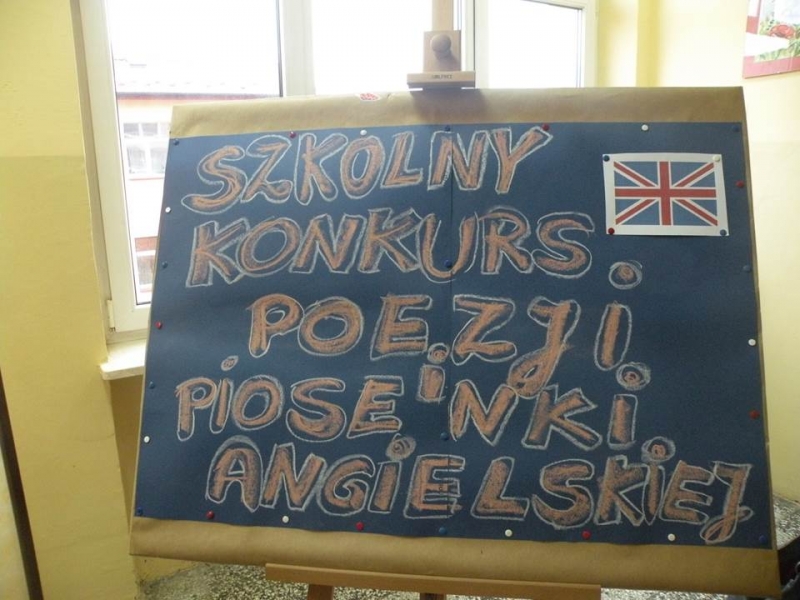 SZKOLNY
KONKURS
POEZJI
i
PIOSENKI
ANGIELSKIEJ